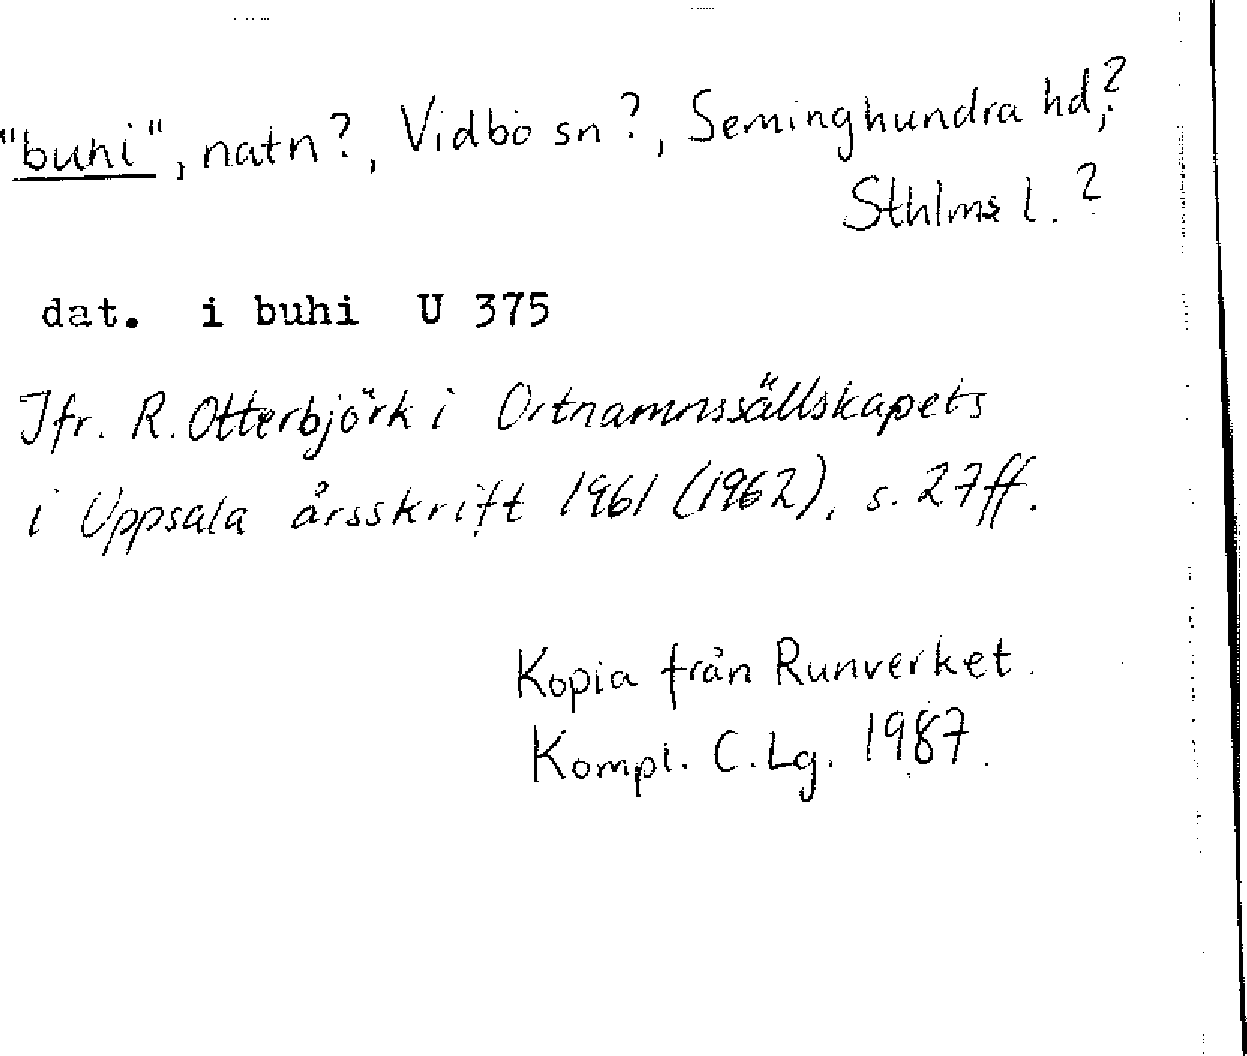 "buhi", natn?, Vidbo sn?, Seminghundra hd?,
Sthlms l.?
dat. i buhi U 375
Jfr. R. Otterbjörk i Ortnamnssällskapets
i Uppsala årsskrift 1961 (1962), s. 27 ff.
Kopia från Runverket.
Kompl. C. Lg. 1987.